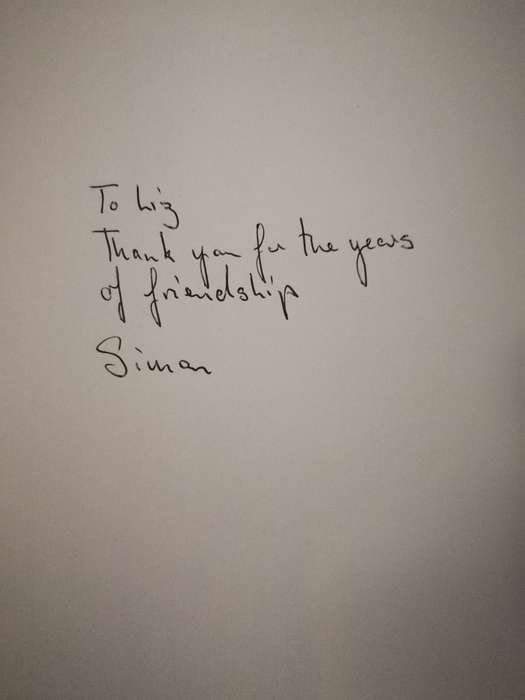 To Liz
Thank you for the years
of friendship
Simon